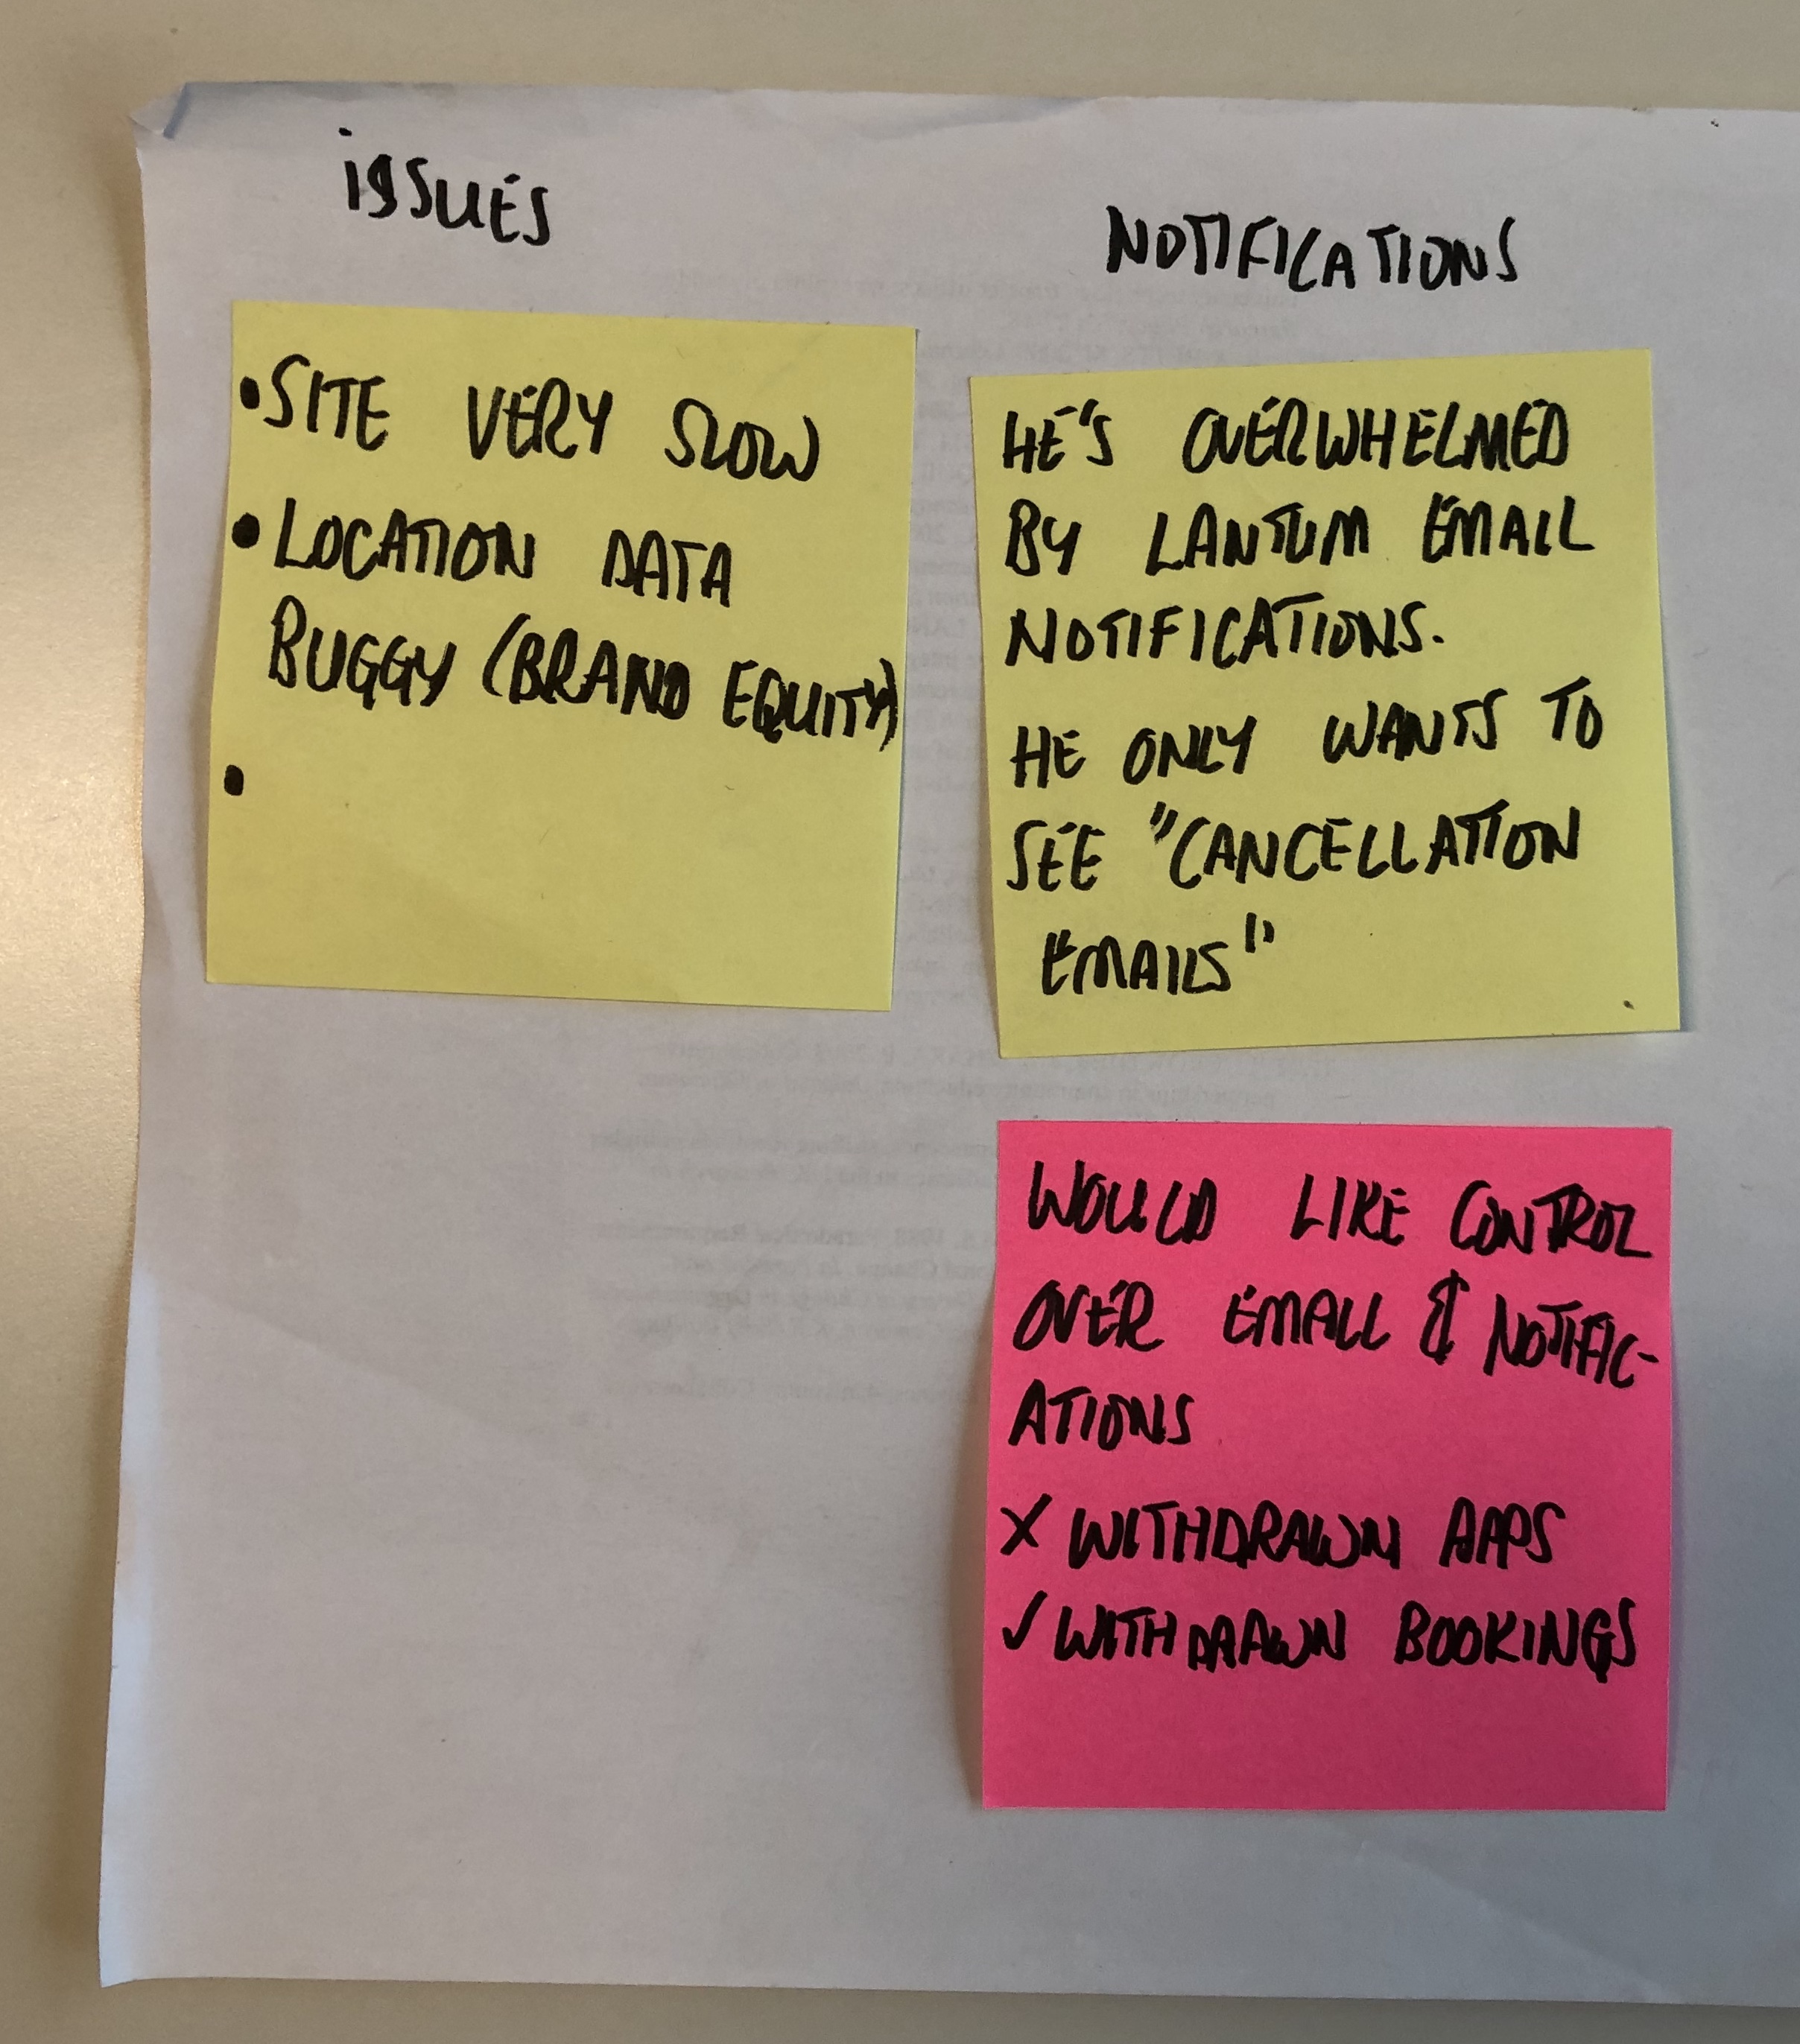 iSSUES
• SITE VERY SLOW
• LOCATION DATA
BUGGY (BRAND EQUITY)
•
NOTIFICATIONS
HE'S OVERWHELMED
BY LANTUM EMAIL
NOTIFICATIONS.
HE ONLY WANTS TO
SEE "CANCELLATION
EMAILS"
WOULD LIKE CONTROL
OVER EMAIL & NOTIFIC-
ATIONS
X WITHDRAWN APPS
✓ WITHDRAWN BOOKINGS